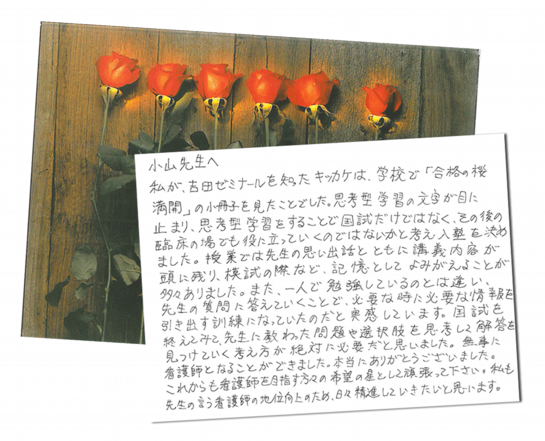 小山先生へ
私が、吉田ゼミナールを知ったキッカケは、学校で「合格の桜
満開」の小冊子を見たことでした。思考型学習の文字が目に
止まり、思考型学習をすることで国試だけではなく、その後の
臨床の場でも役に立っていくのではないかと考え入塾を決め
ました。授業では先生の思い出話とともに講義内容が
頭に残り、模試の際など、記憶としてよみがえることが
多々ありました。また、一人で勉強しているのとは違い、
先生の質問に答えていくことで、必要な時に必要な情報を
引き出す訓練になっていたのだと実感しています。国試を
終えてみて、先生に教わった問題や選択肢を思考して解答を
見つけていく考え方が絶対に必要だと思いました。無事に
看護師となることができました。本当にありがとうございました。
これからも看護師を目指す方々の希望の星として頑張って下さい。私も
先生の言う看護師の地位向上のため、日々精進していきたいと思います。